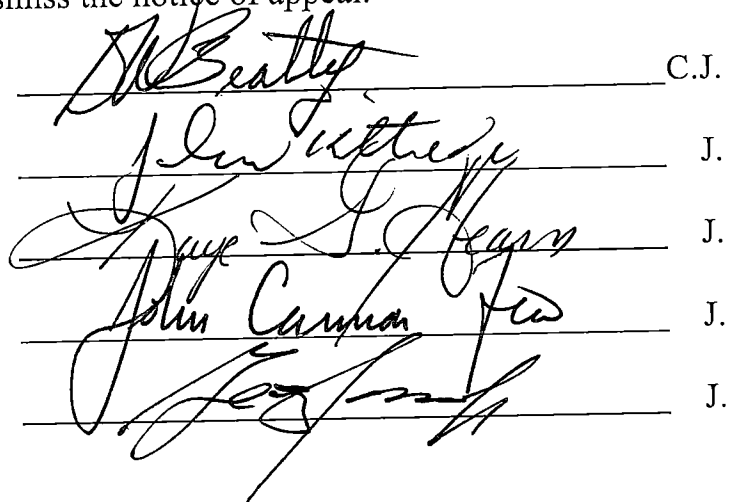 smiss the notice of appeal.
DW Beatty C.J.
John Kittredge J.
Kaye G. Hearn J.
John Cannon Few J.
J.